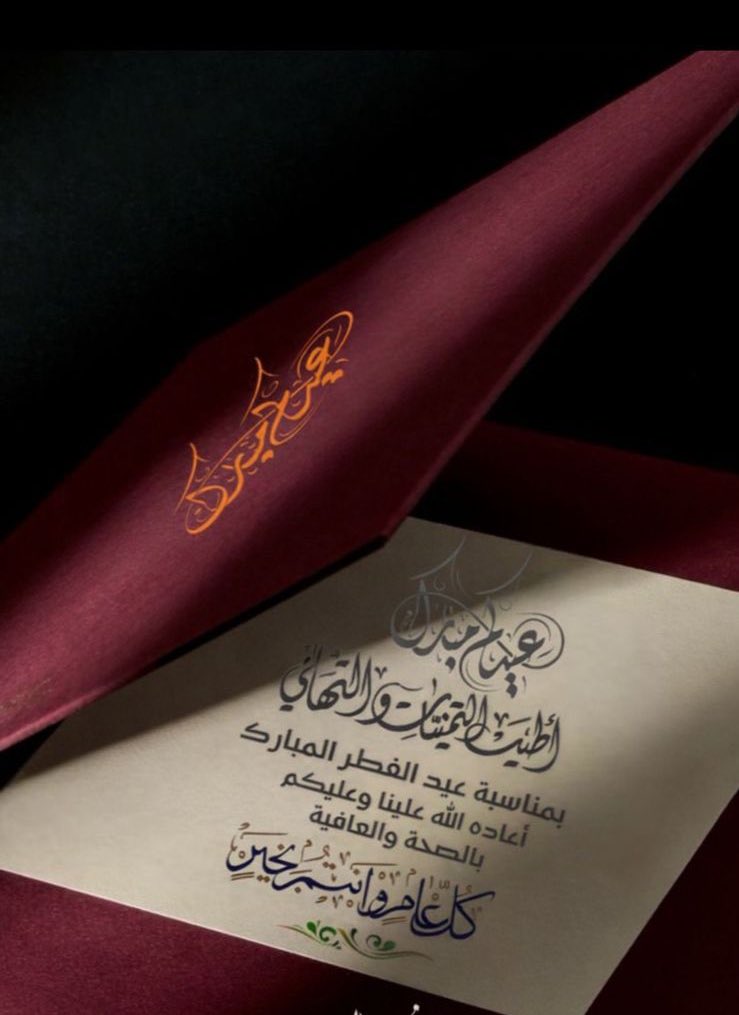 عيدكم مبارك
أطيب التمنيات والتهاني
بمناسبة عيد الفطر المبارك
أعاده الله علينا وعليكم
بالصحة والعافية
كل عام وانتم بخير